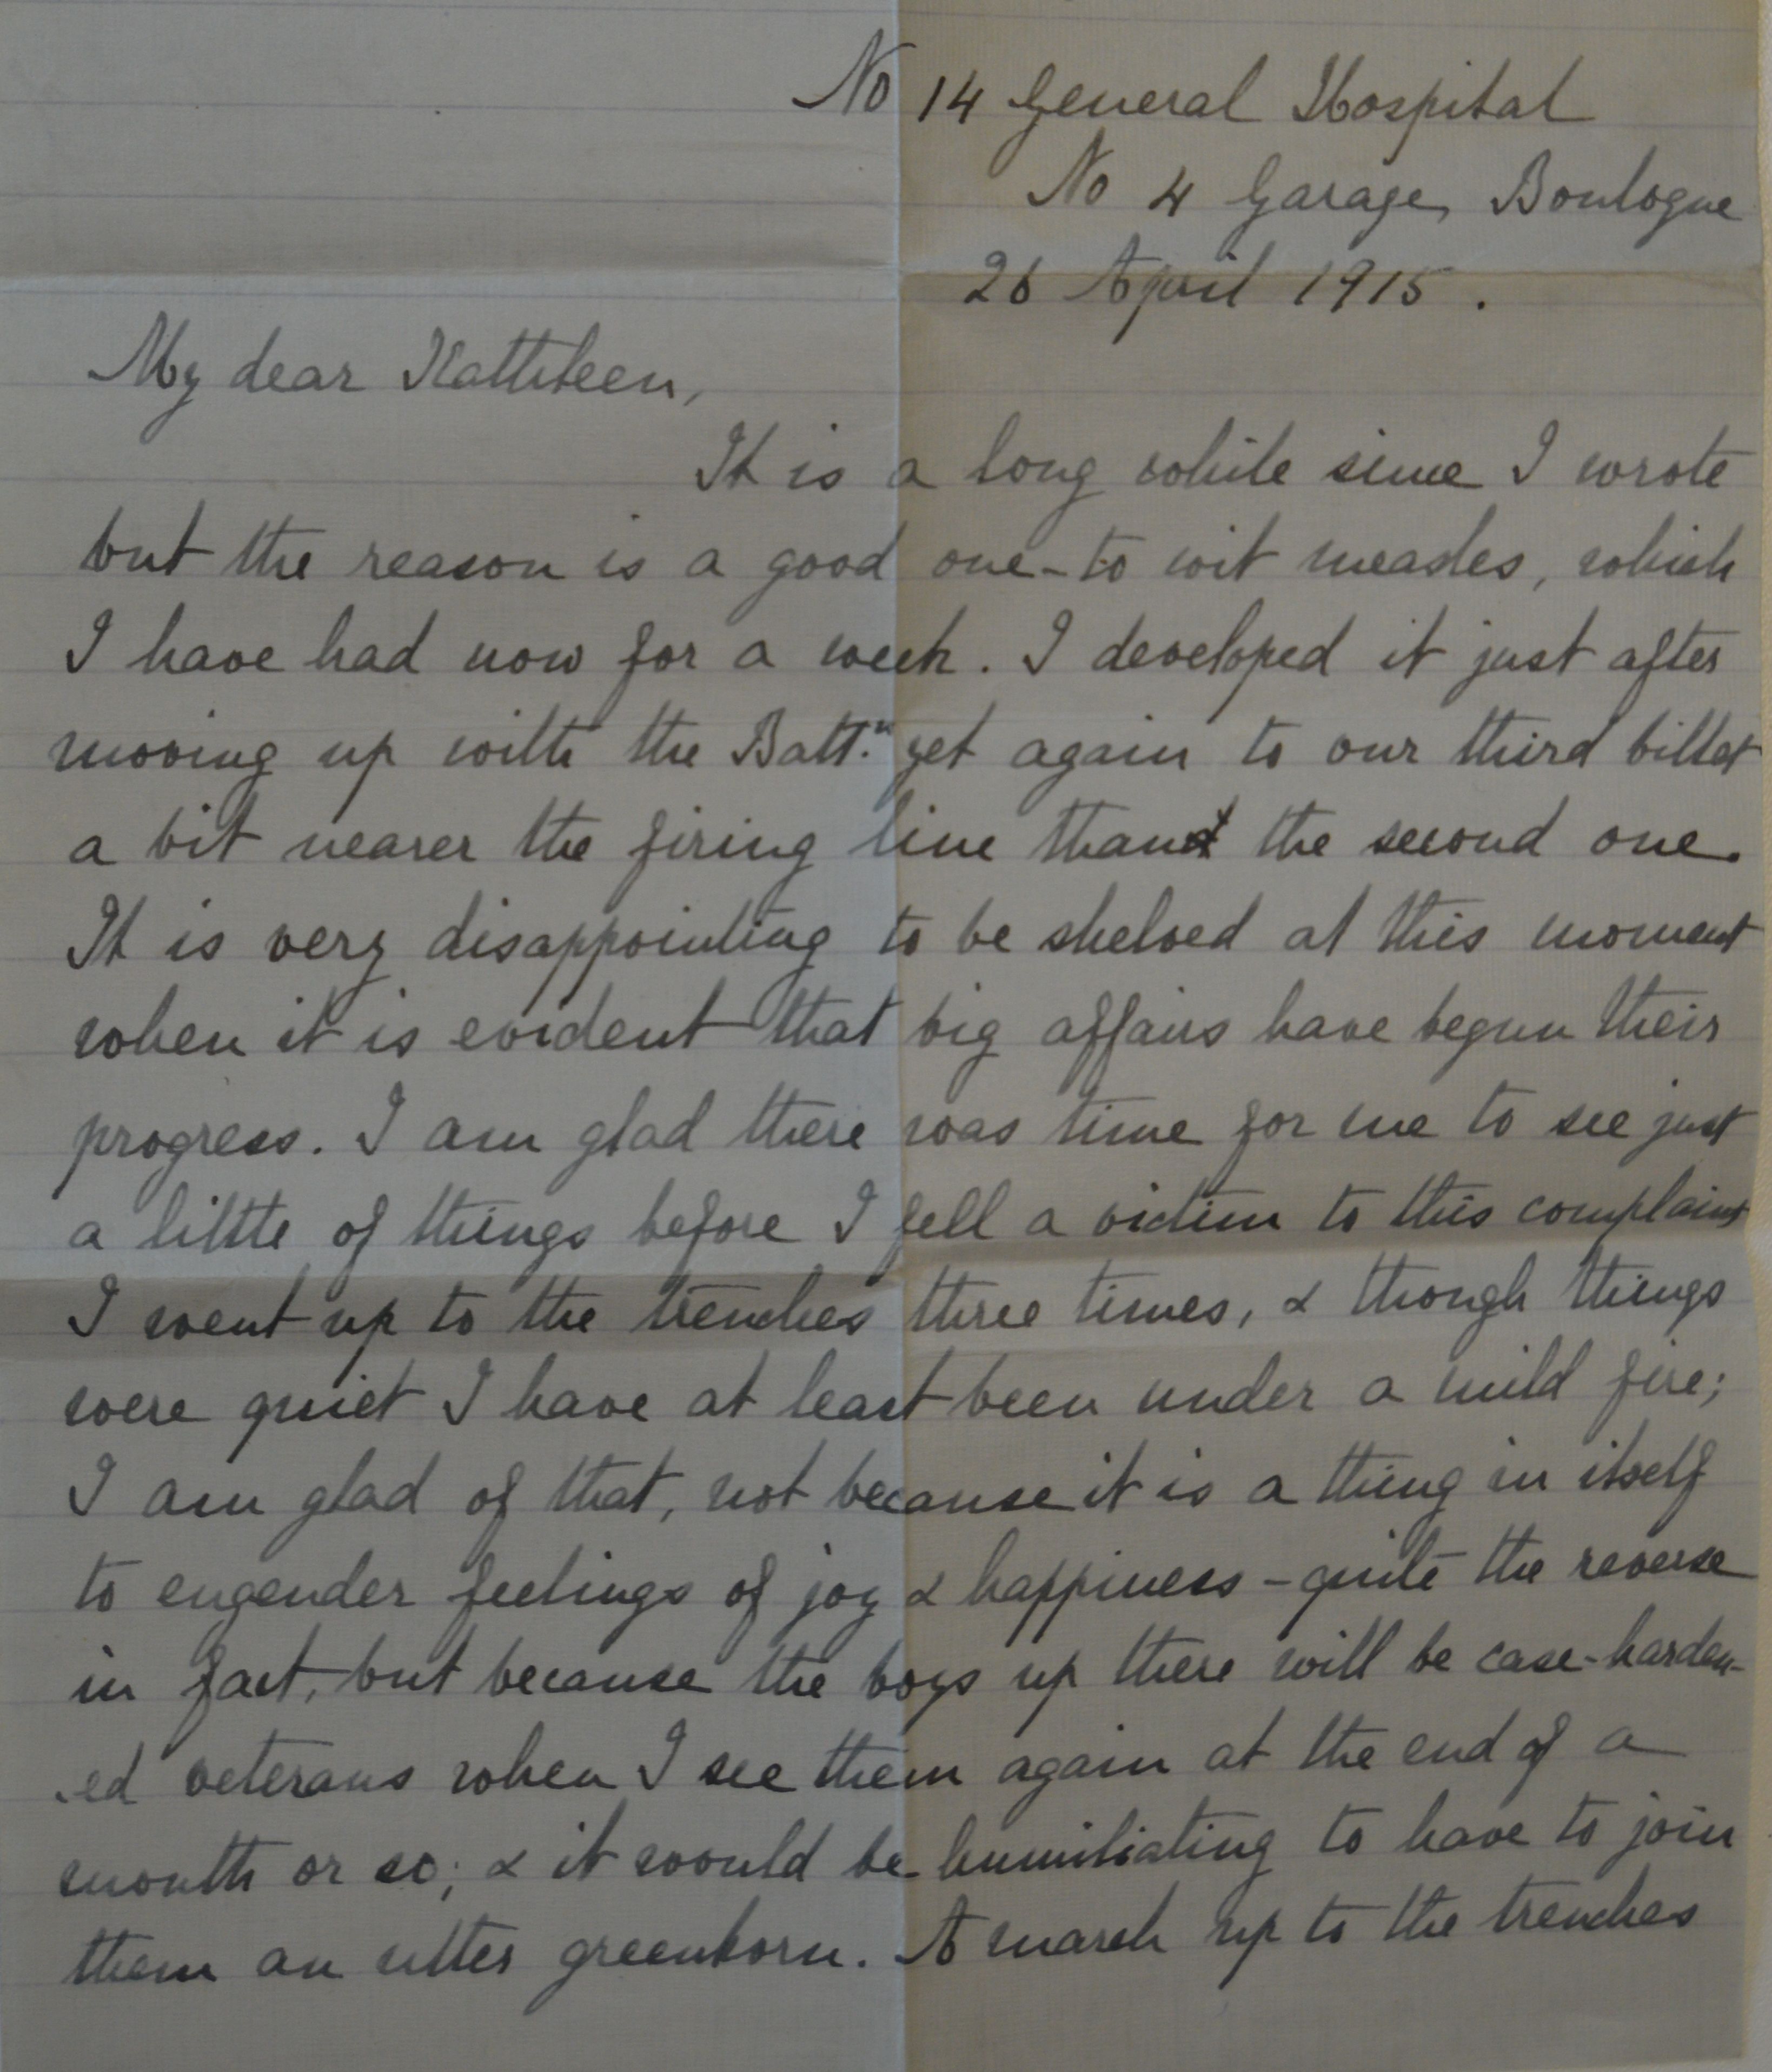 No 14 General Hospital
No 4 Garage, Boulogne
26 April 1915.
My dear Kathleen,
It is a long while since I wrote
but the reason is a good one - to wit measles, which
I have had now for a week. I developed it just after
moving up with the Batt.n yet again to our third billet
a bit nearer the firing line than the second one.
It is very disappointing to be shelved at this moment
when it is evident that big affairs have begun their
progress. I am glad there was time for me to see just
a little of things before I fell a victim to this complaint
I went up to the trenches three times, & though things
were quiet I have at least been under a mild fire;
I am glad of that, not because it is a thing in itself
to engender feelings of joy & happiness - quite the reverse
in fact, but because the boys up there will be case-harden-
-ed veterans when I see them again at the end of a
month or so; & it would be humiliating to have to join
them an utter greenhorn. A march up to the trenches